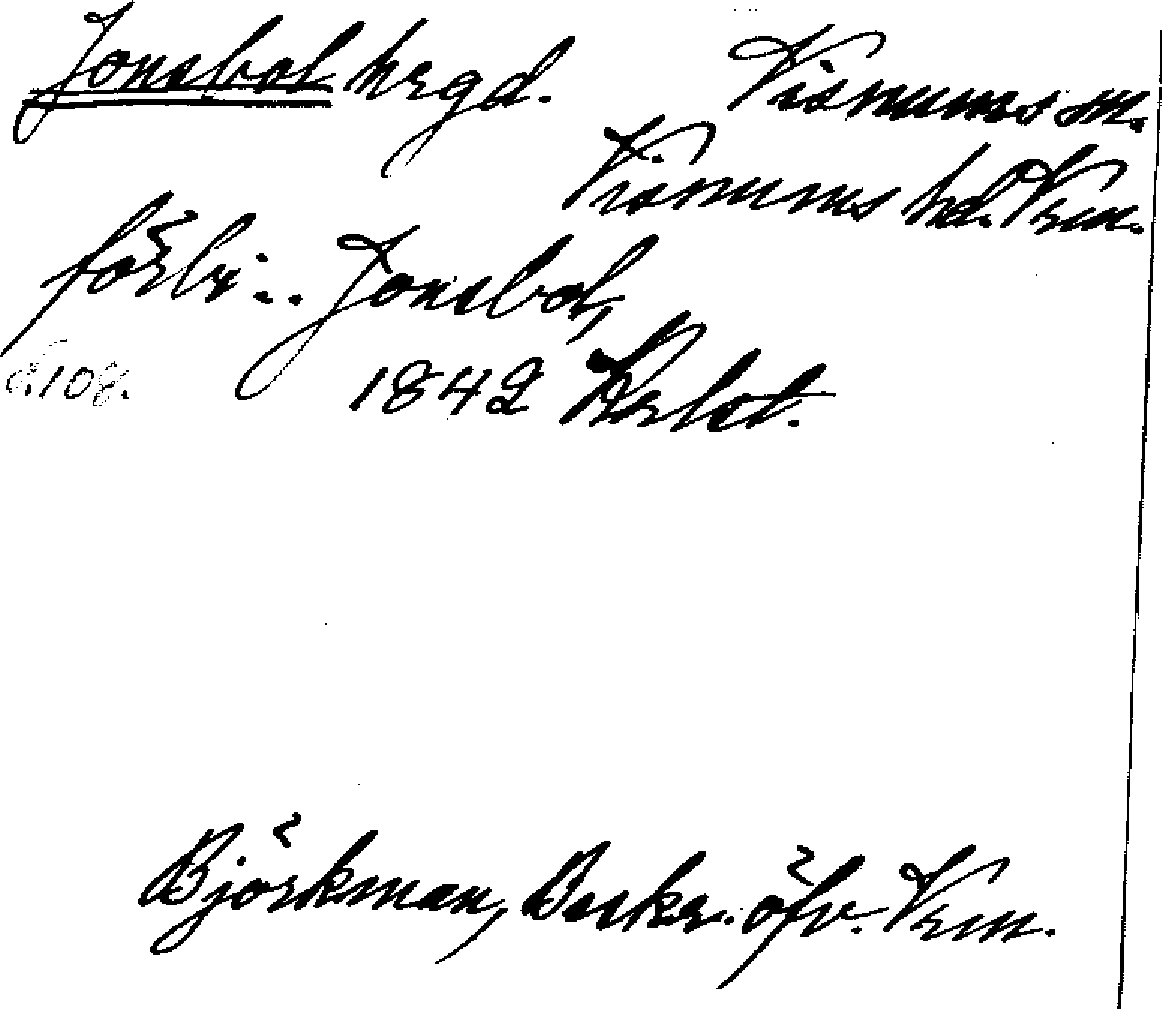 Jonsbol hrgd. Visnums sn.
Visnums hd. Vrm.
förbi .. Jonsbol,
s. 108. 1842
Björkman, Beskr. öfv. Vrm.